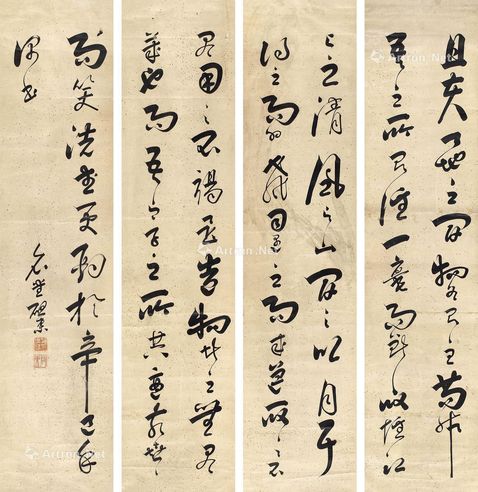 且夫天地之間物各有主苟非
吾之所有雖一毫而莫取惟江
上之清風與山間之明月耳
得之而為聲目遇之而成色取之不
盡用之不竭是造物者之無盡
藏也而吾與子之所共適客喜
而笑洗盞更酌於辛巳年
Artron.Net
Artron.Net
Artron.Net
Artron.Net